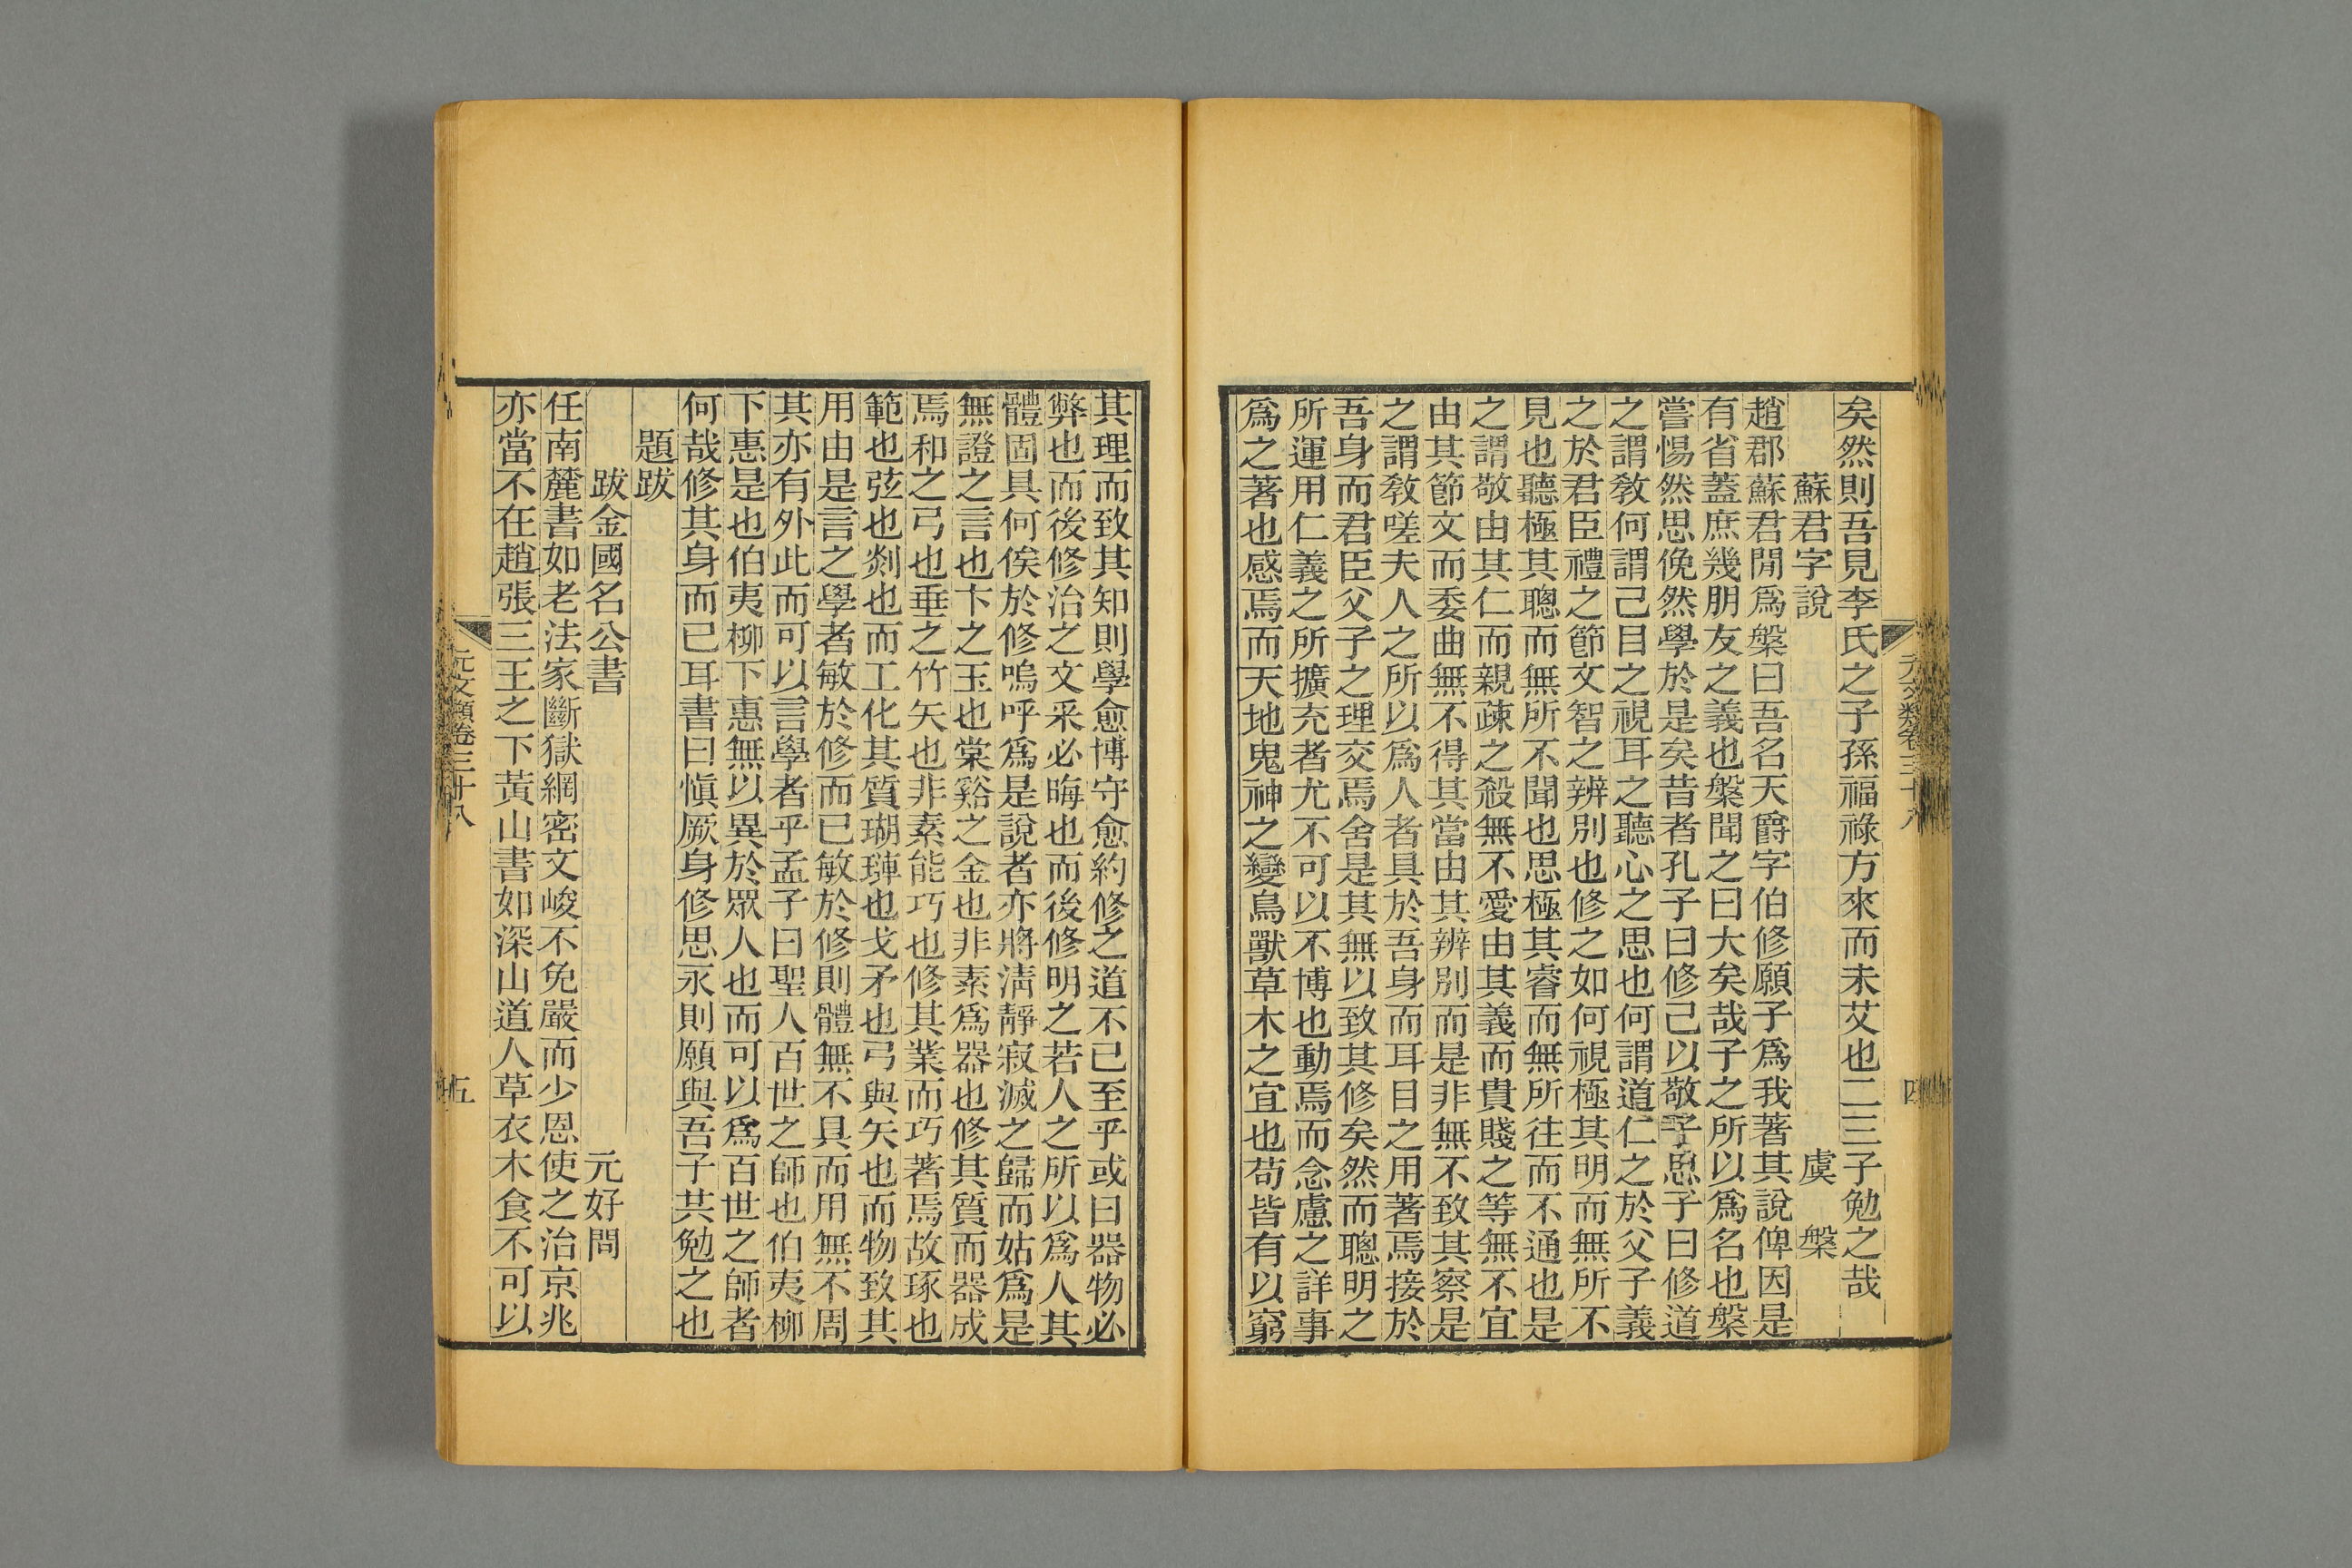 矣然則吾見李氏之子孫福祿方來而未艾也二三子勉之哉
蘇君字說
虞槃
趙郡蘇君閒爲槃曰吾名天爵字伯修願子爲我著其說俾因是
有省蓋庶幾朋友之義也槃聞之曰大矣哉子之所以爲名也槃
嘗惕然思俛然學於是矣昔者孔子曰修己以敬子思子曰修道
之謂敎何謂己目之視耳之聽心之思也何謂道仁之於父子義
之於君臣禮之節文智之辨別也修之如何視極其明而無所不
見也聽極其聰而無所不聞也思極其睿而無所往而不通也是
之謂敬由其仁而親疎之殺無不愛由其義而貴賤之等無不宜
由其節文而委曲無不得其當由其辨別而是非無不致其察是
之謂敎嗟夫人之所以爲人者具於吾身而耳目之用著焉接於
吾身而君臣父子之理交焉舍是其無以致其修矣然而聰明之
所運用仁義之所擴充者尤不可以不博也動焉而念慮之詳事
爲之著也感焉而天地鬼神之變鳥獸草木之宜也苟皆有以窮
元文類卷三十八
四
其理而致其知則學愈博守愈約修之道不已至乎或曰器物必
弊也而後修治之文采必晦也而後修明之若人之所以爲人其
體固具何俟於修嗚呼爲是說者亦將淸靜寂滅之歸而姑爲是
無證之言也卞之玉也棠谿之金也非素爲器也修其質而器成
焉和之弓也垂之竹矢也非素能巧也修其業而巧著焉故琢也
範也弦也剡也而工化其質瑚璉也戈矛也弓與矢也而物致其
用由是言之學者敏於修而已敏於修則體無不具而用無不周
其亦有外此而可以言學者乎孟子曰聖人百世之師也伯夷柳
下惠是也伯夷柳下惠無以異於眾人也而可以爲百世之師者
何哉修其身而已耳書曰愼厥身修思永則願與吾子其勉之也
題跋
跋金國名公書
元好問
任南麓書如老法家斷獄網密文峻不免嚴而少恩使之治京兆
亦當不在趙張三王之下黃山書如深山道人草衣木食不可以
元文類卷三十八
五